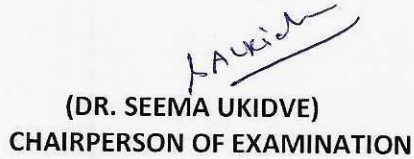 (DR. SEEMA UKIDVE)
CHAIRPERSON OF EXAMINATION